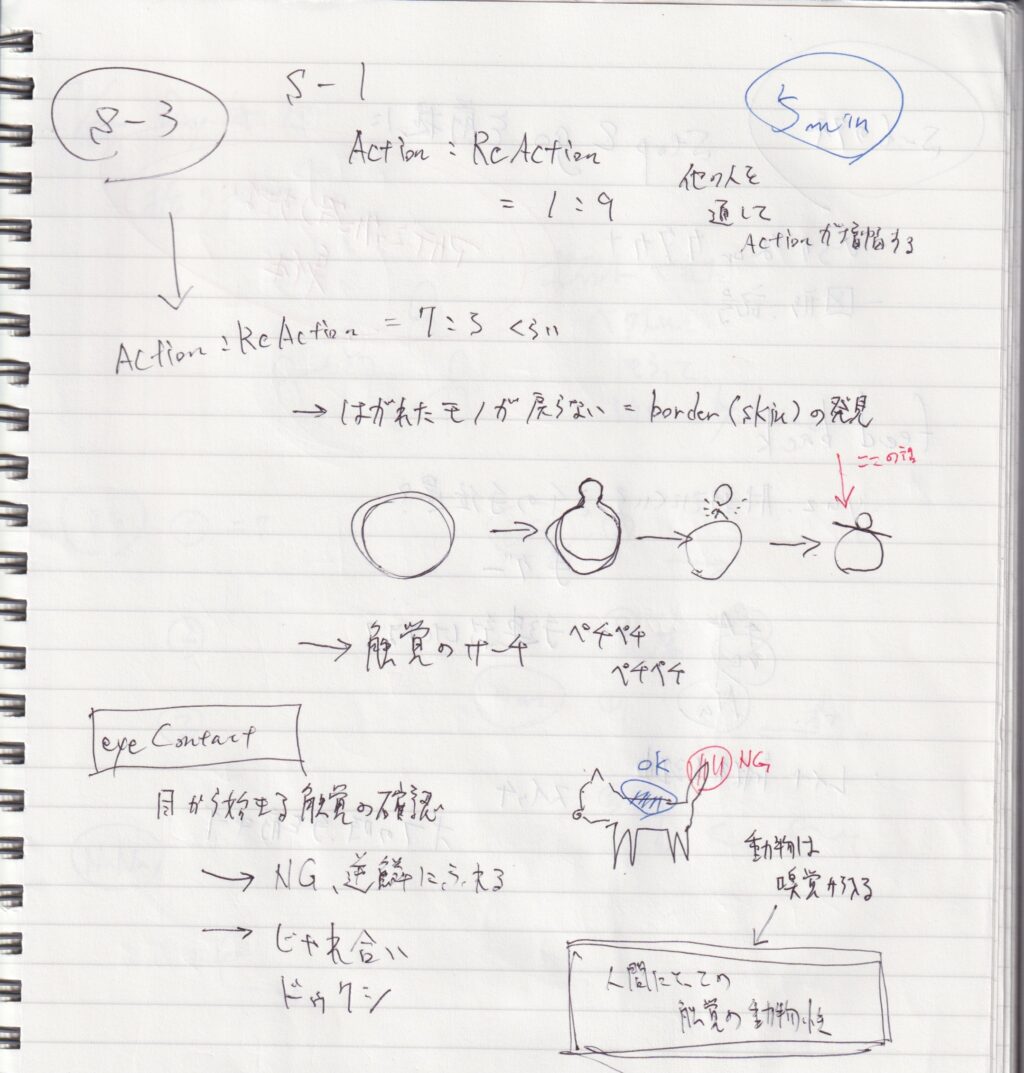 S-3
S-1
5min
Action : ReAction
= 1 : 9
他の人を
通して
Actionが増幅する
Action : ReAction = 7 : 3 くらい
→ はがれたモノが戻らない = border (skin) の発見
ここの話
→ 触覚のサーチ ペチペチ
ペチペチ
eye Contact
目から始まる触覚の確認
→ NG、逆鱗にふれる
→ じゃれ合い
ドゥクシ
OK
NG
動物は
嗅覚から入る
人間にとっての
触覚の動物性